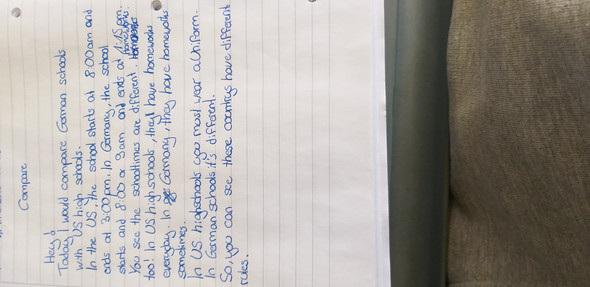 Compare
Hey!
Today I would compare German schools
with US high schools.
In the US, the school starts at 8:00 am and
ends at 3:00 pm. In Germany, the school
starts and 8:00 or 9 am and ends at 1:15 pm.
You see the schooltimes are different. homeworks
too! In US high schools, they have homeworks
everyday. In Germany, they have homeworks
sometimes.
In US highschools you must wear a Uniform.
In German schools it's different.
So, you can see these countrys have different
rules.